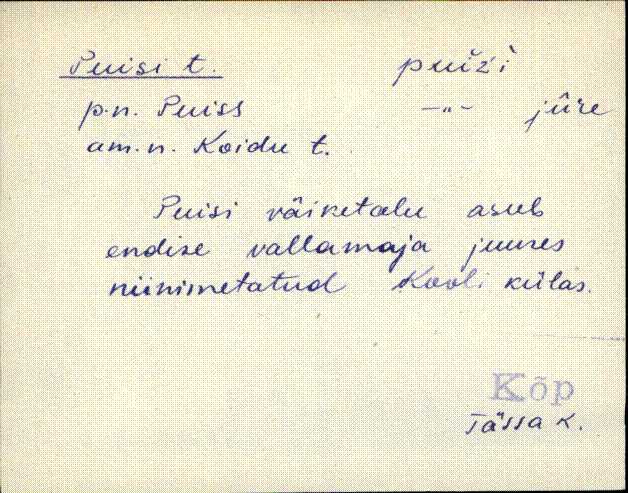 Puisi t. puiži̇̀
p.n. Puiss —„— jûre
am.n. Koidu t.
Puisi väiketalu asub
endise vallamaja juures
niinimetatud Kooli külas.
Kõp
Tässa k.